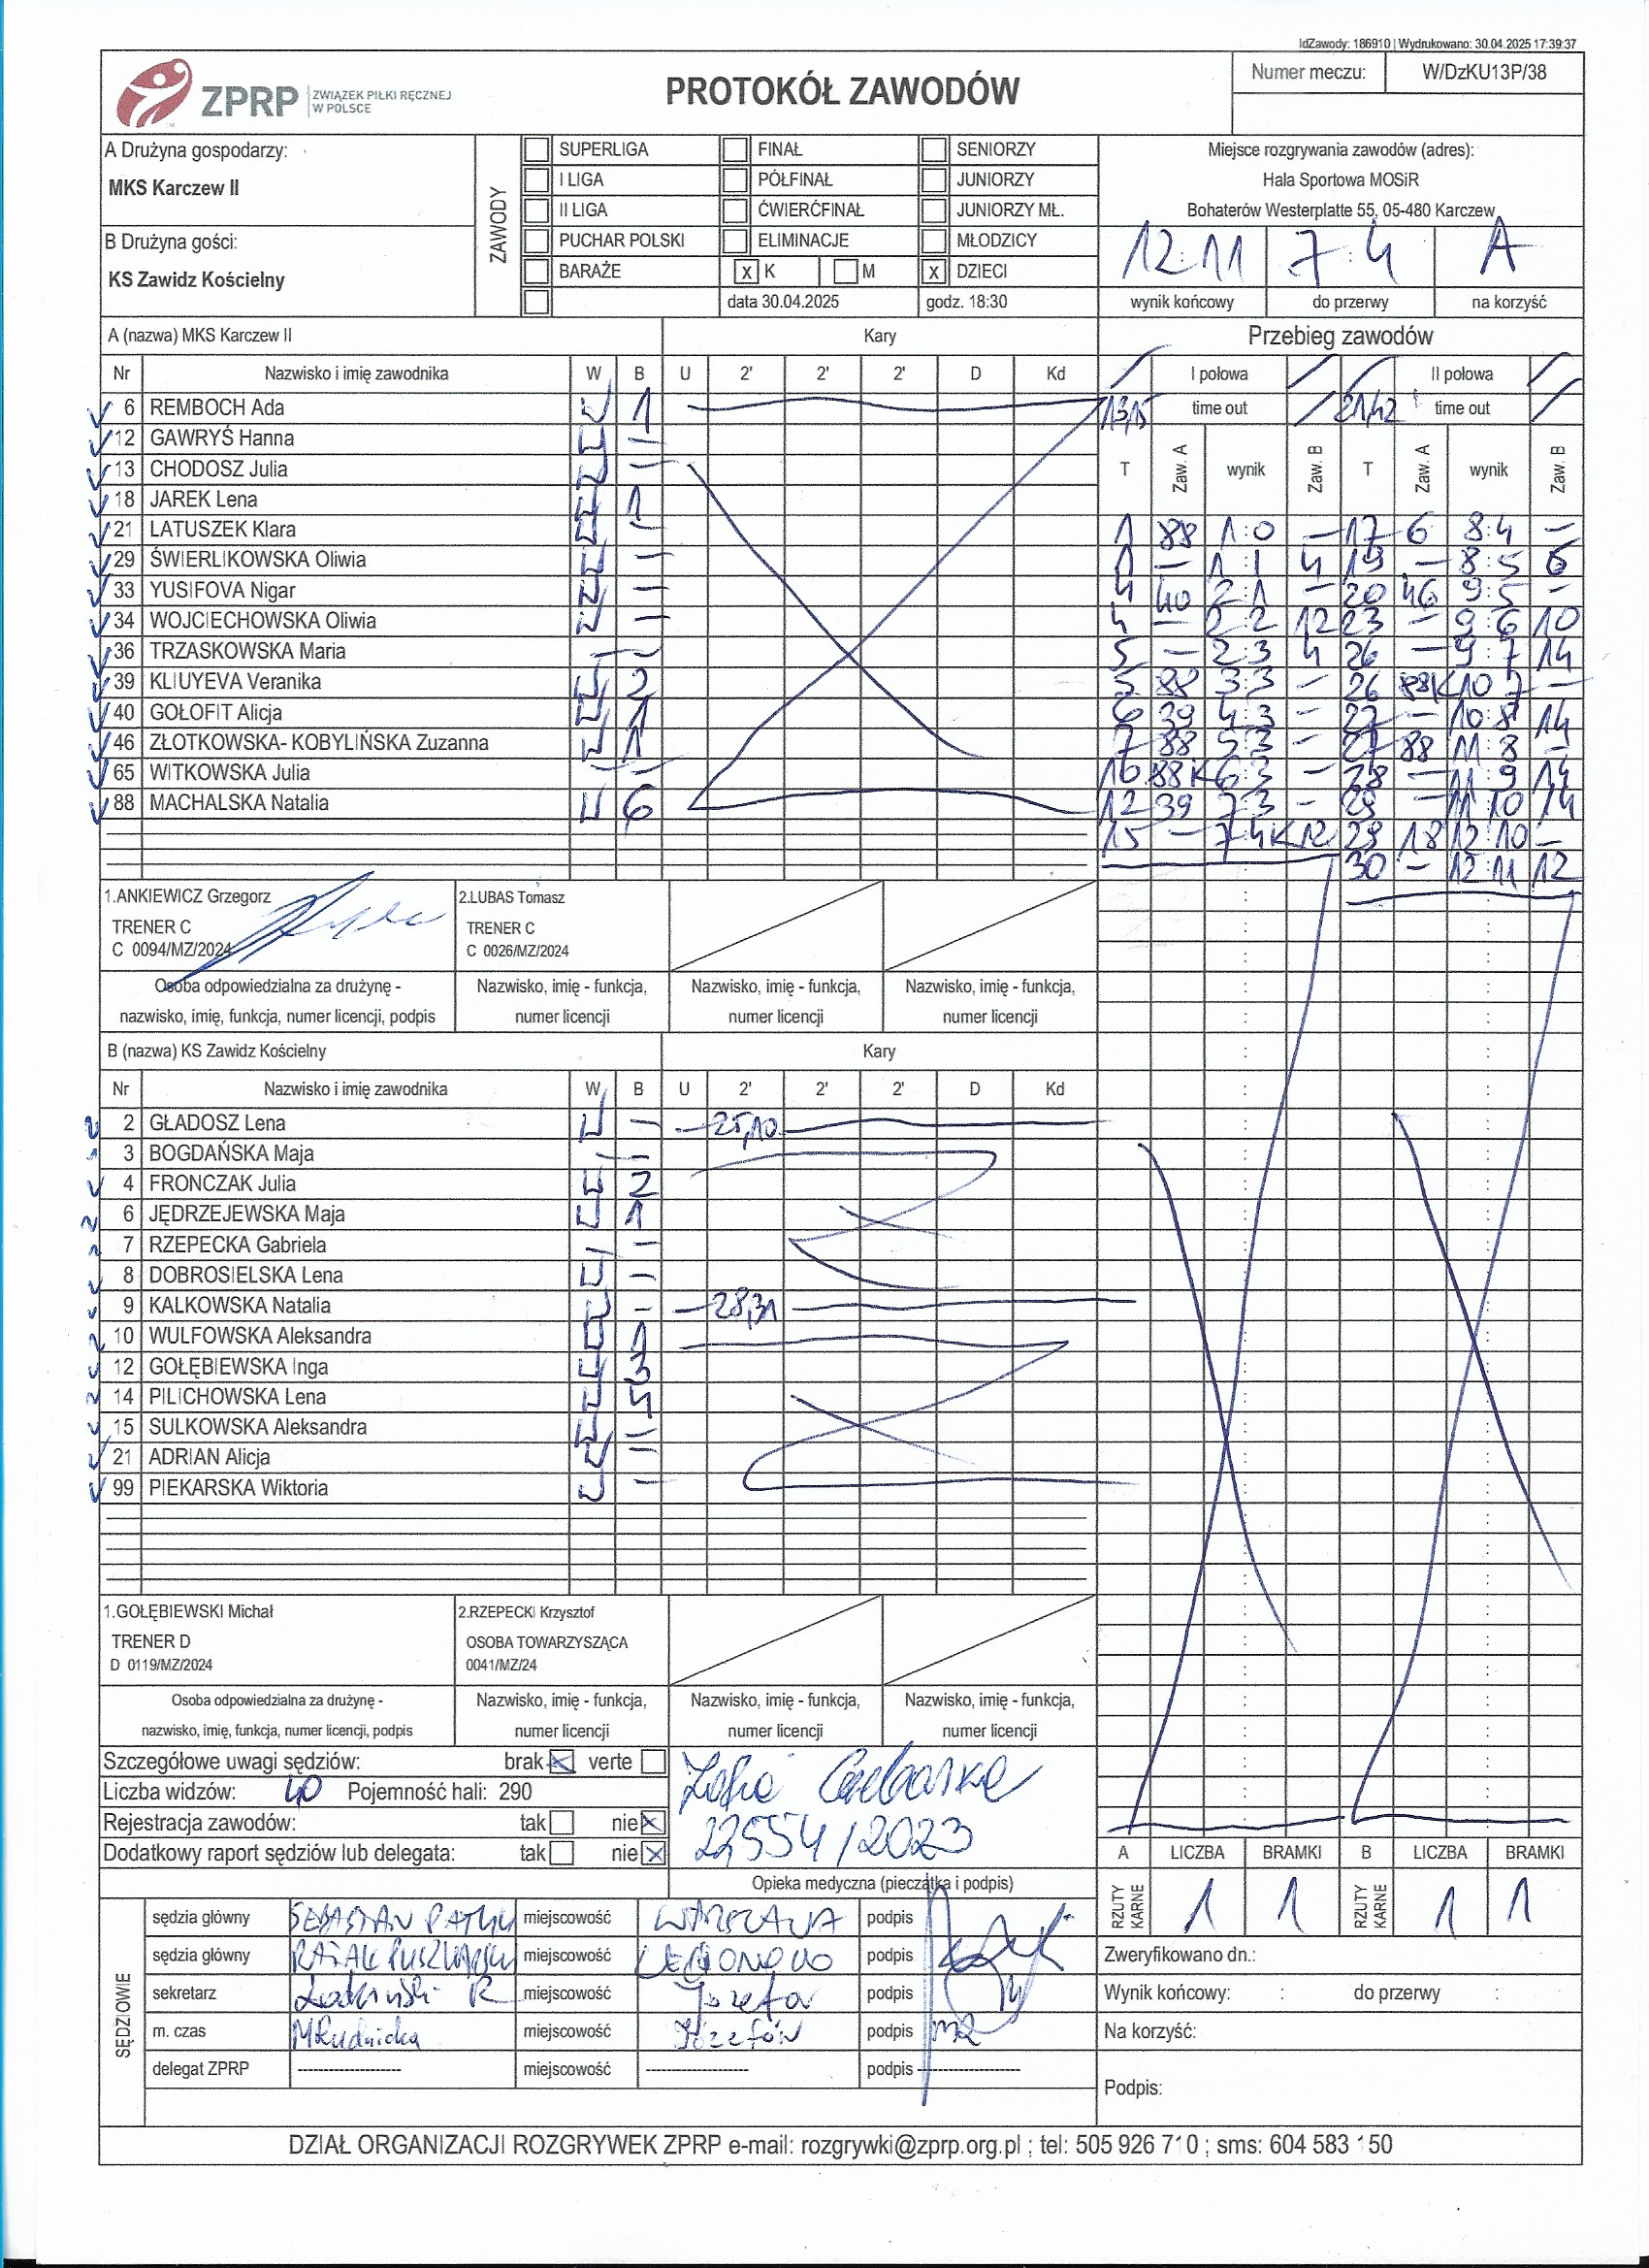 IdZawody: 186910 | Wydrukowano: 30.04.2025 17:39:37
ZPRP ZWIĄZEK PIŁKI RĘCZNEJ W POLSCE
PROTOKÓŁ ZAWODÓW
Numer meczu: W/DzKU13P/38
A Drużyna gospodarzy:
MKS Karczew II
B Drużyna gości:
KS Zawidz Kościelny
ZAWODY
SUPERLIGA FINAŁ SENIORZY
I LIGA PÓŁFINAŁ JUNIORZY
II LIGA ĆWIERĆFINAŁ JUNIORZY MŁ.
PUCHAR POLSKI ELIMINACJE MŁODZICY
BARAŻE x K M x DZIECI
data 30.04.2025 godz. 18:30
Miejsce rozgrywania zawodów (adres):
Hala Sportowa MOSiR
Bohaterów Westerplatte 55, 05-480 Karczew
12:11 7:4 A
wynik końcowy do przerwy na korzyść
A (nazwa) MKS Karczew II Kary
Nr Nazwisko i imię zawodnika W B U 2' 2' 2' D Kd
6 REMBOCH Ada 1
12 GAWRYŚ Hanna –
13 CHODOSZ Julia –
18 JAREK Lena 1
21 LATUSZEK Klara –
29 ŚWIERLIKOWSKA Oliwia –
33 YUSIFOVA Nigar –
34 WOJCIECHOWSKA Oliwia –
36 TRZASKOWSKA Maria –
39 KLIUYEVA Veranika 2
40 GOŁOFIT Alicja 1
46 ZŁOTKOWSKA- KOBYLIŃSKA Zuzanna 1
65 WITKOWSKA Julia –
88 MACHALSKA Natalia 6
Przebieg zawodów
I połowa II połowa
13,15 time out 21,42 time out
T Zaw. A wynik Zaw. B T Zaw. A wynik Zaw. B
1 88 1:0 – 17 6 8:4 –
1 – 1:1 4 19 – 8:5 6
4 40 2:1 – 20 46 9:5 –
4 – 2:2 12 23 – 9:6 10
5 – 2:3 4 26 – 9:7 14
5 88 3:3 – 26 88K 10:7 –
6 39 4:3 – 27 – 10:8 14
7 88 5:3 – 27 88 11:8 –
10 88K 6:3 – 28 – 11:9 14
12 39 7:3 – 29 – 11:10 14
15 – 7:4K 12 29 18 12:10 –
30 – 12:11 12
1.ANKIEWICZ Grzegorz
TRENER C
C 0094/MZ/2024
2.LUBAS Tomasz
TRENER C
C 0026/MZ/2024
Osoba odpowiedzialna za drużynę -
nazwisko, imię, funkcja, numer licencji, podpis
Nazwisko, imię - funkcja,
numer licencji
Nazwisko, imię - funkcja,
numer licencji
Nazwisko, imię - funkcja,
numer licencji
B (nazwa) KS Zawidz Kościelny Kary
Nr Nazwisko i imię zawodnika W B U 2' 2' 2' D Kd
2 GŁADOSZ Lena – 25,10
3 BOGDAŃSKA Maja –
4 FRONCZAK Julia 2
6 JĘDRZEJEWSKA Maja 1
7 RZEPECKA Gabriela –
8 DOBROSIELSKA Lena –
9 KALKOWSKA Natalia – 28,31
10 WULFOWSKA Aleksandra 1
12 GOŁĘBIEWSKA Inga 3
14 PILICHOWSKA Lena 4
15 SULKOWSKA Aleksandra –
21 ADRIAN Alicja –
99 PIEKARSKA Wiktoria –
1.GOŁĘBIEWSKI Michał
TRENER D
D 0119/MZ/2024
2.RZEPECKI Krzysztof
OSOBA TOWARZYSZĄCA
0041/MZ/24
Osoba odpowiedzialna za drużynę -
nazwisko, imię, funkcja, numer licencji, podpis
Nazwisko, imię - funkcja,
numer licencji
Nazwisko, imię - funkcja,
numer licencji
Nazwisko, imię - funkcja,
numer licencji
Szczegółowe uwagi sędziów: brak x verte
Liczba widzów: 40 Pojemność hali: 290
Rejestracja zawodów: tak nie x
Dodatkowy raport sędziów lub delegata: tak nie x
22554/2023
Opieka medyczna (pieczątka i podpis)
A LICZBA BRAMKI B LICZBA BRAMKI
RZUTY KARNE 1 1 RZUTY KARNE 1 1
SĘDZIOWIE
sędzia główny SEBASTIAN miejscowość WARSZAWA podpis
sędzia główny RAFAŁ miejscowość LEGIONOWO podpis
sekretarz miejscowość Józefów podpis
m. czas miejscowość Józefów podpis
delegat ZPRP -------------------- miejscowość -------------------- podpis --------------------
Zweryfikowano dn.:
Wynik końcowy: : do przerwy :
Na korzyść:
Podpis:
DZIAŁ ORGANIZACJI ROZGRYWEK ZPRP e-mail: rozgrywki@zprp.org.pl ; tel: 505 926 710 ; sms: 604 583 150